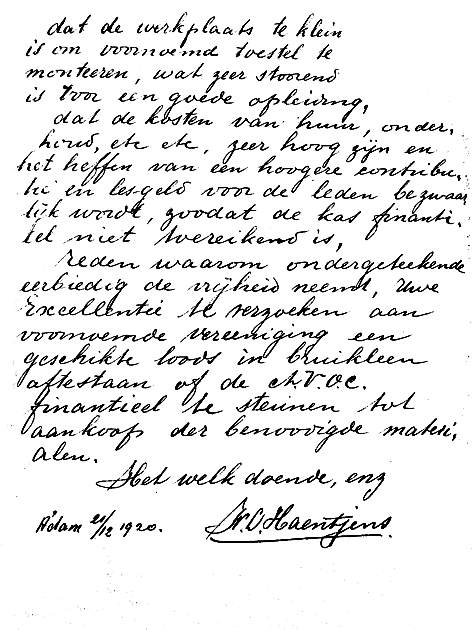 dat de werkplaats te klein
is om voornoemd toestel te
monteeren, wat zeer stoorend
is voor een goede opleiding,
dat de kosten van huur, onder-
houd, etc etc, zeer hoog zijn en
het heffen van een hoogere contribu-
tie en lesgeld voor de leden bezwaar
lijk wordt, zoodat de kas financi-
eel niet toereikend is,
reden waarom ondergeteekende
eerbiedig de vrijheid neemt, Uwe
Excellentie te verzoeken aan
voornoemde vereeniging een
geschikte loods in bruikleen
aftestaan of de A.V.O.C.
financieel te steunen tot
aankoop der benoodigde materi-
alen.
Het welk doende, enz
A'dam 21/12 1920. Haentjens.